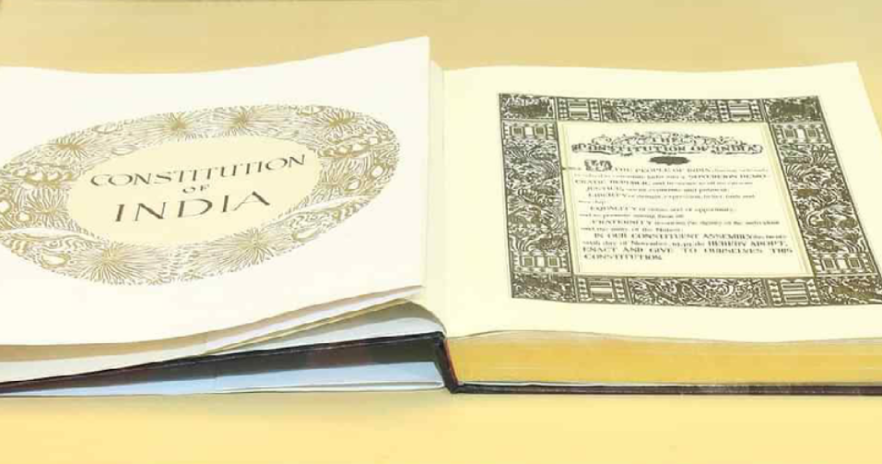 CONSTITUTION
OF
INDIA
THE
CONSTITUTION OF INDIA
WE THE PEOPLE OF INDIA, having solemnly
resolved to constitute India into a SOVEREIGN DEMO-
CRATIC REPUBLIC and to secure to all its citizens
JUSTICE, social, economic and political;
LIBERTY of thought, expression, belief, faith and
worship;
EQUALITY of status and of opportunity;
and to promote among them all
FRATERNITY assuring the dignity of the individual
and the unity of the Nation;
IN OUR CONSTITUENT ASSEMBLY this twenty
sixth day of November, 1949, do HEREBY ADOPT,
ENACT AND GIVE TO OURSELVES THIS
CONSTITUTION.